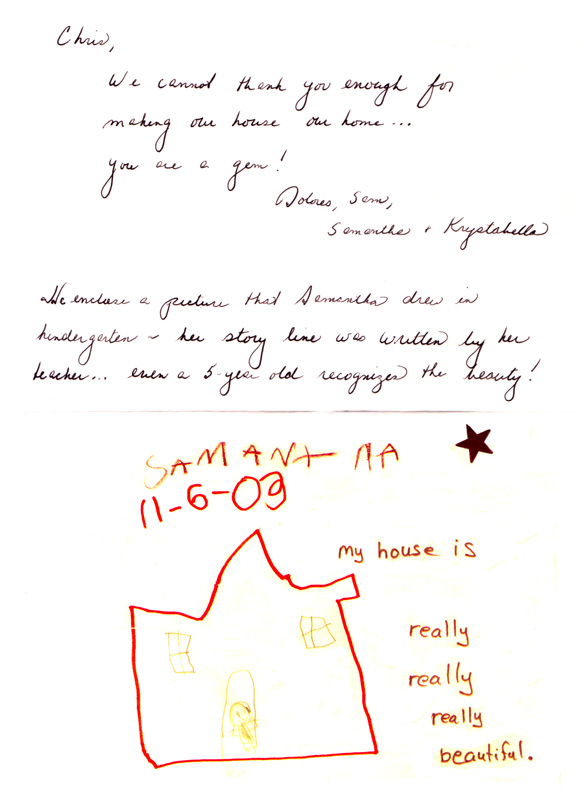 Chris,
We cannot thank you enough for
making our house our home...
you are a gem!
Dolores, Sam,
Samantha & Krystabella
We enclose a picture that Samantha drew in
kindergarten ~ her story line was written by her
teacher... even a 5-year old recognizes the beauty!
SAMANTHA
11-6-03
my house is
really
really
really
beautiful.